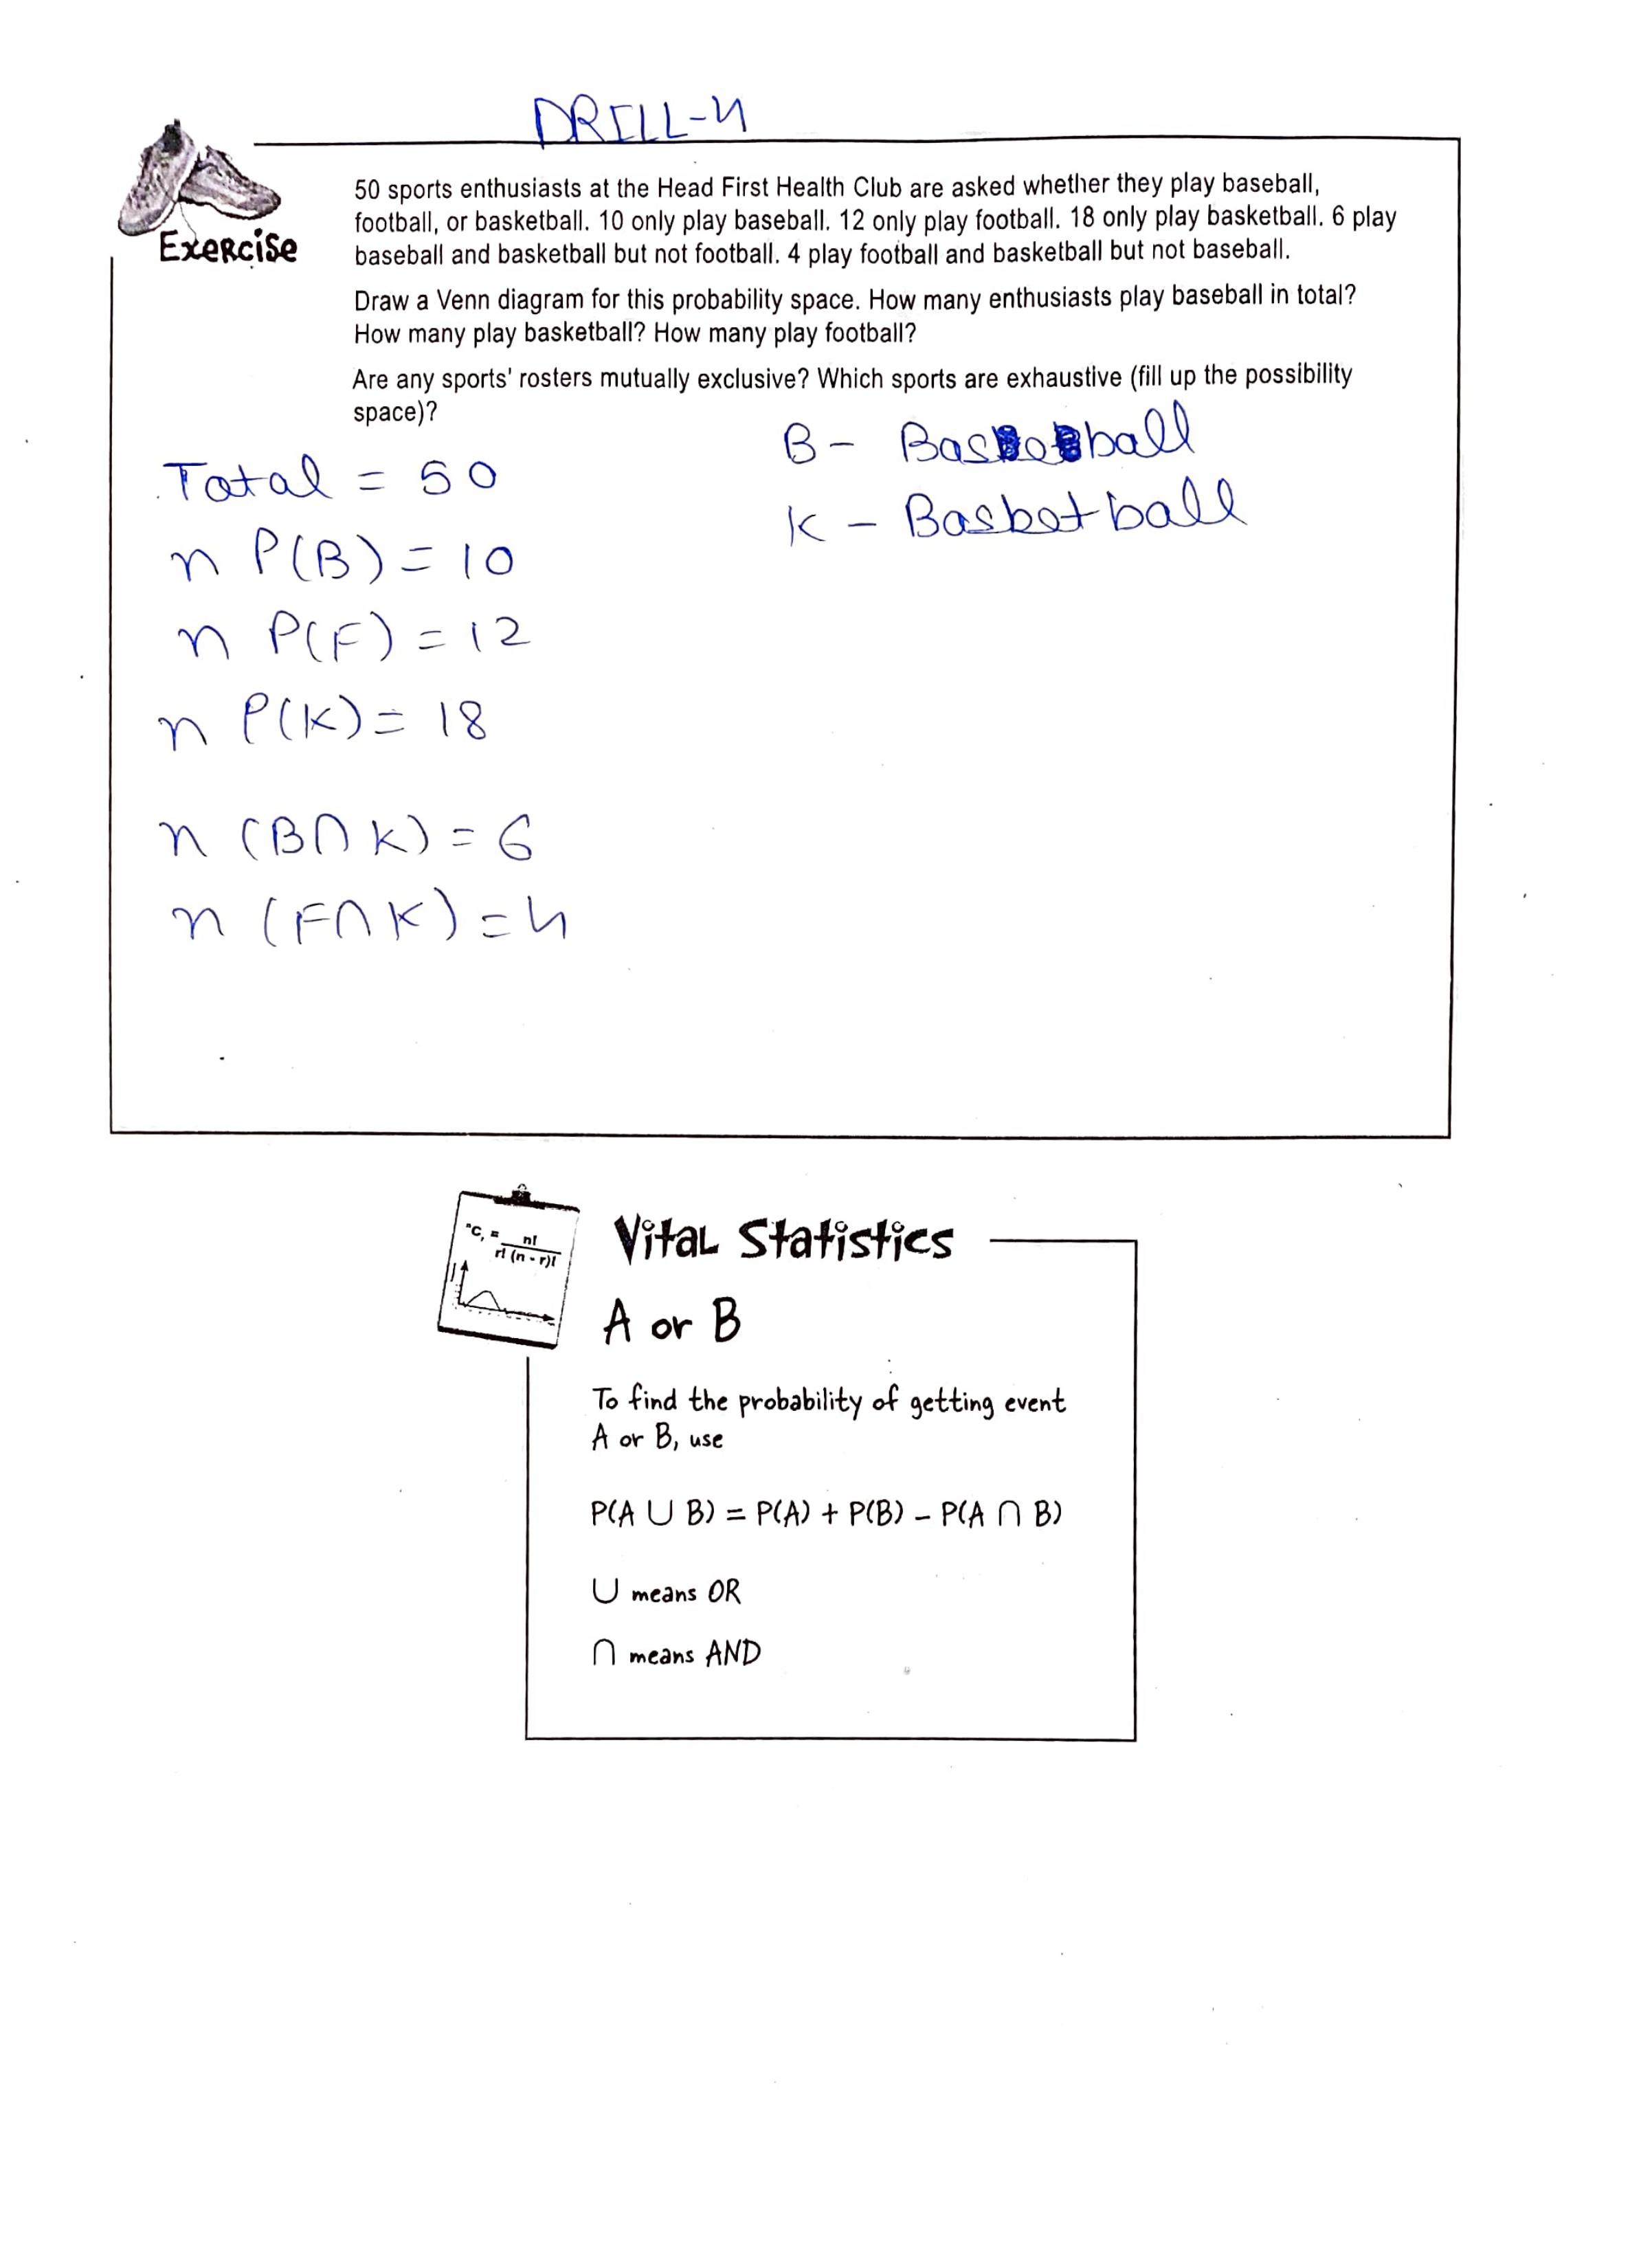 DRILL-4
Exercise
50 sports enthusiasts at the Head First Health Club are asked whether they play baseball,
football, or basketball. 10 only play baseball. 12 only play football. 18 only play basketball. 6 play
baseball and basketball but not football. 4 play football and basketball but not baseball.
Draw a Venn diagram for this probability space. How many enthusiasts play baseball in total?
How many play basketball? How many play football?
Are any sports' rosters mutually exclusive? Which sports are exhaustive (fill up the possibility
space)?
B - Baseball
K - Basketball
Total = 50
n P(B) = 10
n P(F) = 12
n P(K) = 18
n (B∩K) = 6
n (F∩K) = 4
ⁿCᵣ = n!
r! (n - r)!
Vital Statistics
A or B
To find the probability of getting event
A or B, use
P(A ∪ B) = P(A) + P(B) - P(A ∩ B)
∪ means OR
∩ means AND